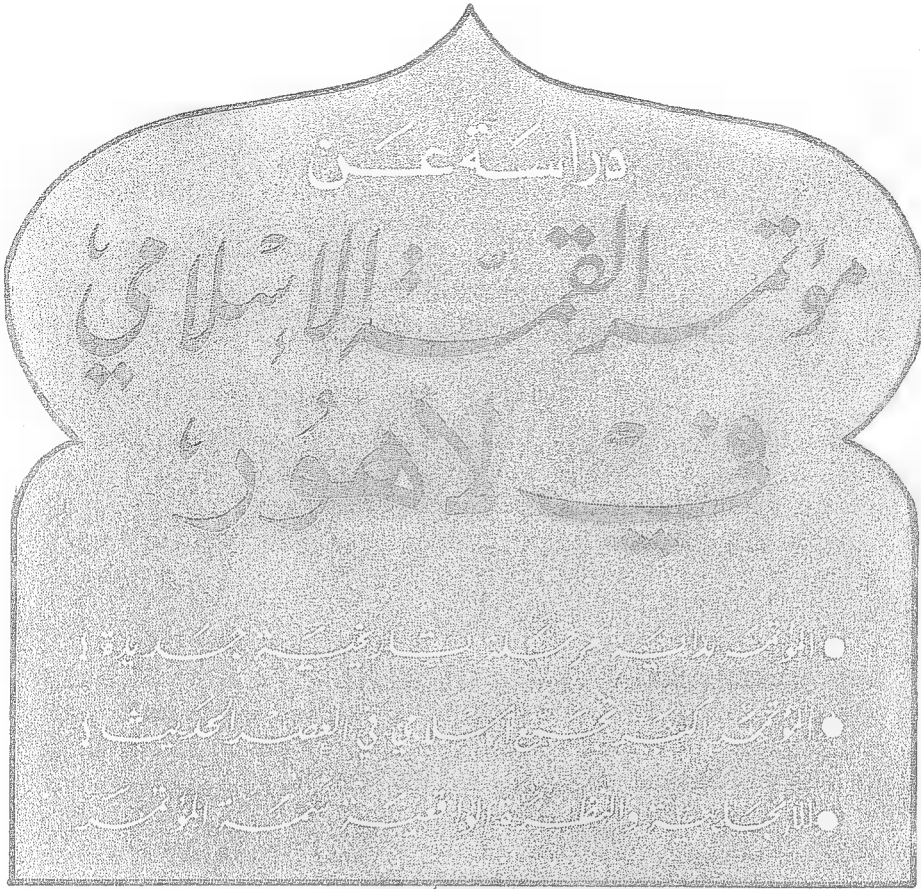 دراسة عن
مؤتمر القمة الإسلامي
في لاهور
المؤتمر بداية مرحلة تاريخية جديدة !
المؤتمر أكبر تجمع إسلامي في العصر الحديث !
الإيجابية والنظرة الواقعية سمة المؤتمر